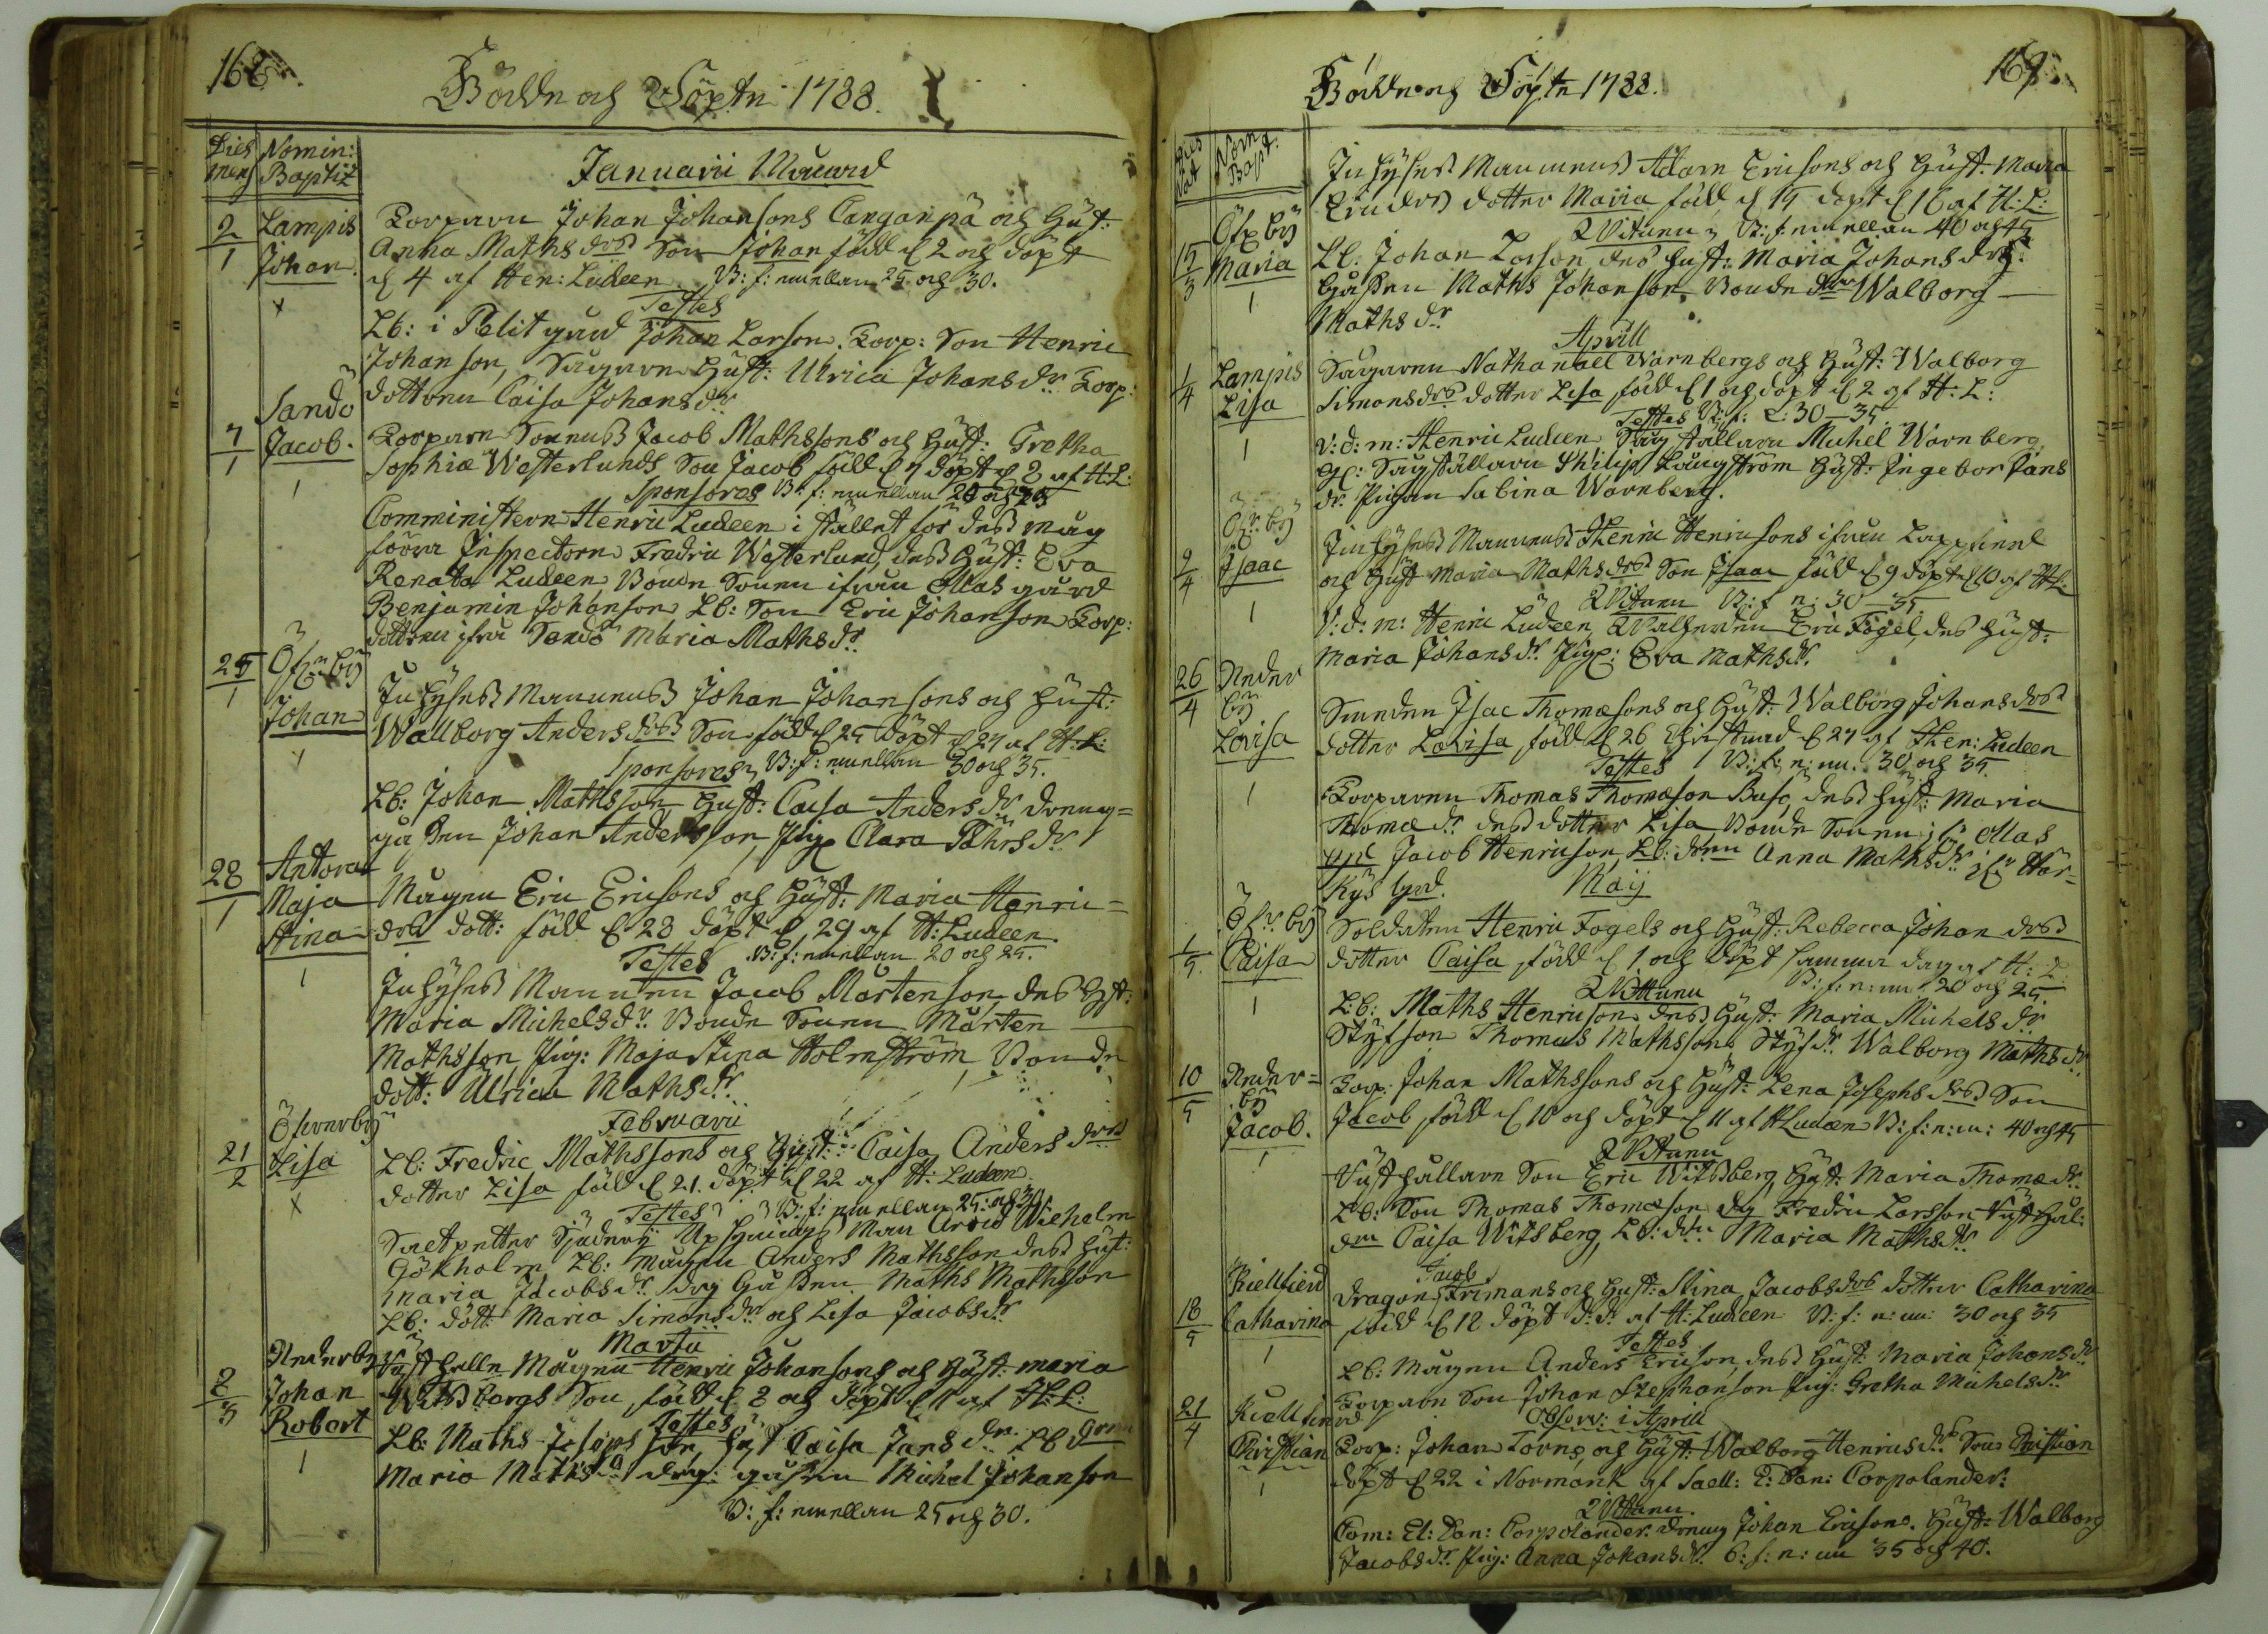 168.
Födde och Döpte 1788.
Dies mens
Nomin: Baptiz
Januarii Månad
2/1
Lampis
Johan
Torparn Johan Johansons Canganpä och Hust:
Anna Mathsdrs Son Johan född d 2 och döpt
d 4 af Hen: Ludeen B: f: emellan 25 och 30.
Testes
Lb: i Pelitgård Johan Larson. Torp: Son Henric
Johanson, Sågarens Hust: Ulrica Johansdr Torp:
dottren Caisa Johansdr
7/1
Sandö
Jacob.
Torparn Sonens Jacob Mathssons och Hust: Gretha
Sophiæ Westerlunds Son Jacob född d 7 döpt d 8 af H:L:
Sponsores B: f: emellan 20 och 25
Comministern Henric Ludeen i stället för dess måg
Inspectorn Fredric Westerlund, dess Hust: Eva
Renata Ludeen, Bonde Sonen ifrån Ollas gård
Benjamin Johanson Lb: Son Eric Johanson Torp:
dottren ifrån Sandö Maria Mathsdr.
25/1
Öfverby
Johan
Inhyses Mannens Johan Johansons och Hust:
Wallborg Andersdrs Son född d 25 döpt d 27 af H:L:
Sponsores B: f: emellan 30 och 35.
Lb: Johan Mathsson Hust: Caisa Andersdr dreng=
gåssen Johan Andersson, Pig: Clara Påhrsdr
28/1
Antora
Maja
Stina
Mågen Eric Ericsons och Hust: Maria Henric=
drs dott: född d 28 döpt d 29 af H: Ludeen
Testes B: f: emellan 20 och 25.
Inhyses Mannen Jacob Mårtenson, dess Hust:
Maria Michelsdr. Bonde Sonen Mårten
Mathsson Pig: Maja Stina Holmström, Bonde
dott: Ulrica Mathsdr
Februarii
21/2
Öfverby
Lisa
Lb: Fredric Mathssons och Hust: Caisa Andersdrs
dotter Lisa född d 21. döpt d 22 af H: Ludeen
Testes B: f: emellan 25. och 30.
Saltpetter Sjuderi Uphsynings Man Arvid Wilhelm
Gökholm Lb: mågen Anders Mathsson dess Hust:
Maria Jacobsdr. drg Gåssen Maths Mathsson
Lb: dott: Maria Simonsdr och Lisa Jacobsdr
Martii
8/3
Nederby
Johan
Robert
Mågen Henric Johansons och Hust: Maria
Witsbergs Son född d 8 och döpt d af H:L:
Testes
Lb: Maths Josephson, Hust Caisa Jansdr. Lb
Maria Mathsdr drg: gåssen Michel Johanson
B: f: emellan 25 och 30.
169.
Födde och Döpte 1788.
Dies Nat
Nomn Bapt:
15/3
Öfv: by
Maria
Inhyses Mannens Adam Ericsons och Hust: Maria
Ericsdrs dotter Maria född d 15 döpt d 16 af H:L:
Wittnen B: f: emellan 40 och 45
Lb: Johan Larson dess Hust: Maria Johansdr.
Gåssen Maths Johanson. Bonde Walborg
Mathsdr.
Aprill
1/4
Lampis
Lisa
Sågaren Nathanaël Warnbergs och Hust: Walborg
Simonsdrs dotter Lisa född d 1 och döpt d 2 af H: L:
Testes B: f: 30—35.
V: d: m: Henric Ludeen Sågställaren Michel Warnberg
Sågställaren Philip Långström Hust: Ingebor Jans
dr. Pigan Sabina Warnberg.
9/4
Öfv: by
Isaac
Inhyses Mannens Henric Henricsons ifrån Lappfierd
och Hust Maria Mathsdrs Son Isaac född d 9 döpt d 10 af H:L
Wittnen B: f. n: 30—35.
V: d: m: Henric Ludeen Eric Fogel, dess Hust:
Maria Johansdr. Pig: Eva Mathsdr.
26/4
Neder
by
Lovisa
Smeden Isac Thomæsons och Hust: Walborg Johansdrs
dotter Lovisa född d 26 Christnad d 27 af Hen: Ludeen
Testes B: f: n: m. 30 och 35.
Torparen Thomas Thomæson Busc, dess Hust: Maria
Thomædr dess dotter Lisa Bonde Sonen Ollas
grd Jacob Henricson, Lb: Anna Mathsdr. Här=
Kys grd.
Maij
1/5.
Öfv: by
Caisa
Soldaten Henric Fogels och Hust: Rebecca Johandrs
dotter Caisa född d 1 och döpt samma dag af H: L
Wittnen B: f: n: m: 20 och 25.
Lb: Maths Henricson dess Hust: Maria Michelsdr
Styfson Thomas Mathsson Styfdr. Walborg Mathsdr.
10/5
Neder=
by
Jacob.
Torp: Johan Mathssons och Hust: Lena Josephsdrs Son
Jacob född d 10 och döpt d 11 af H Ludeen B: f: n: m: 40 och 45
Wittnen
Son Eric Witsberg, Hust: Maria Thomædr.
Lb: Son Thomas Thomæson drg Fredric Larsson
Caisa Witsberg, Lb: Maria Mathsdr.
18/5
Kiellfierd
Catharina
Dragon Jacob Frimans och Hust: Stina Jacobsdrs dotter Catharina
född d 18 döpt d: d: af H: Ludeen B: f: n: m: 30 och 35
Testes
Lb: Mågen Anders Ericson, dess Hust: Maria Johansdr.
Torparn Son Johan Stephanson Pig: Gretha Michelsdr.
Observ: i Aprill
21/4
Kiellfierd
Christian
Torp: Johan Torns och Hust: Walborg Henricsdrs Son Cristian
döpt d 22 i Normark af Saell: E: Dan: Corpolander:
Wittnen
Com: El: Dan: Corpolander. dreng Johan Ericsons. Hust: Walborg
Jacobsdr. Pig: Anna Johansdr. B: f: n: m 35 och 40.